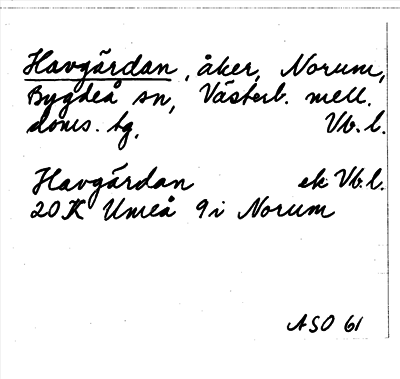 Havgärdan, åker, Norum,
Bygdeå sn, Västerb. mell.
doms. tg. Vb. l.
Havgärdan ek Vb. l.
20K Umeå 9i Norum
ASO 61